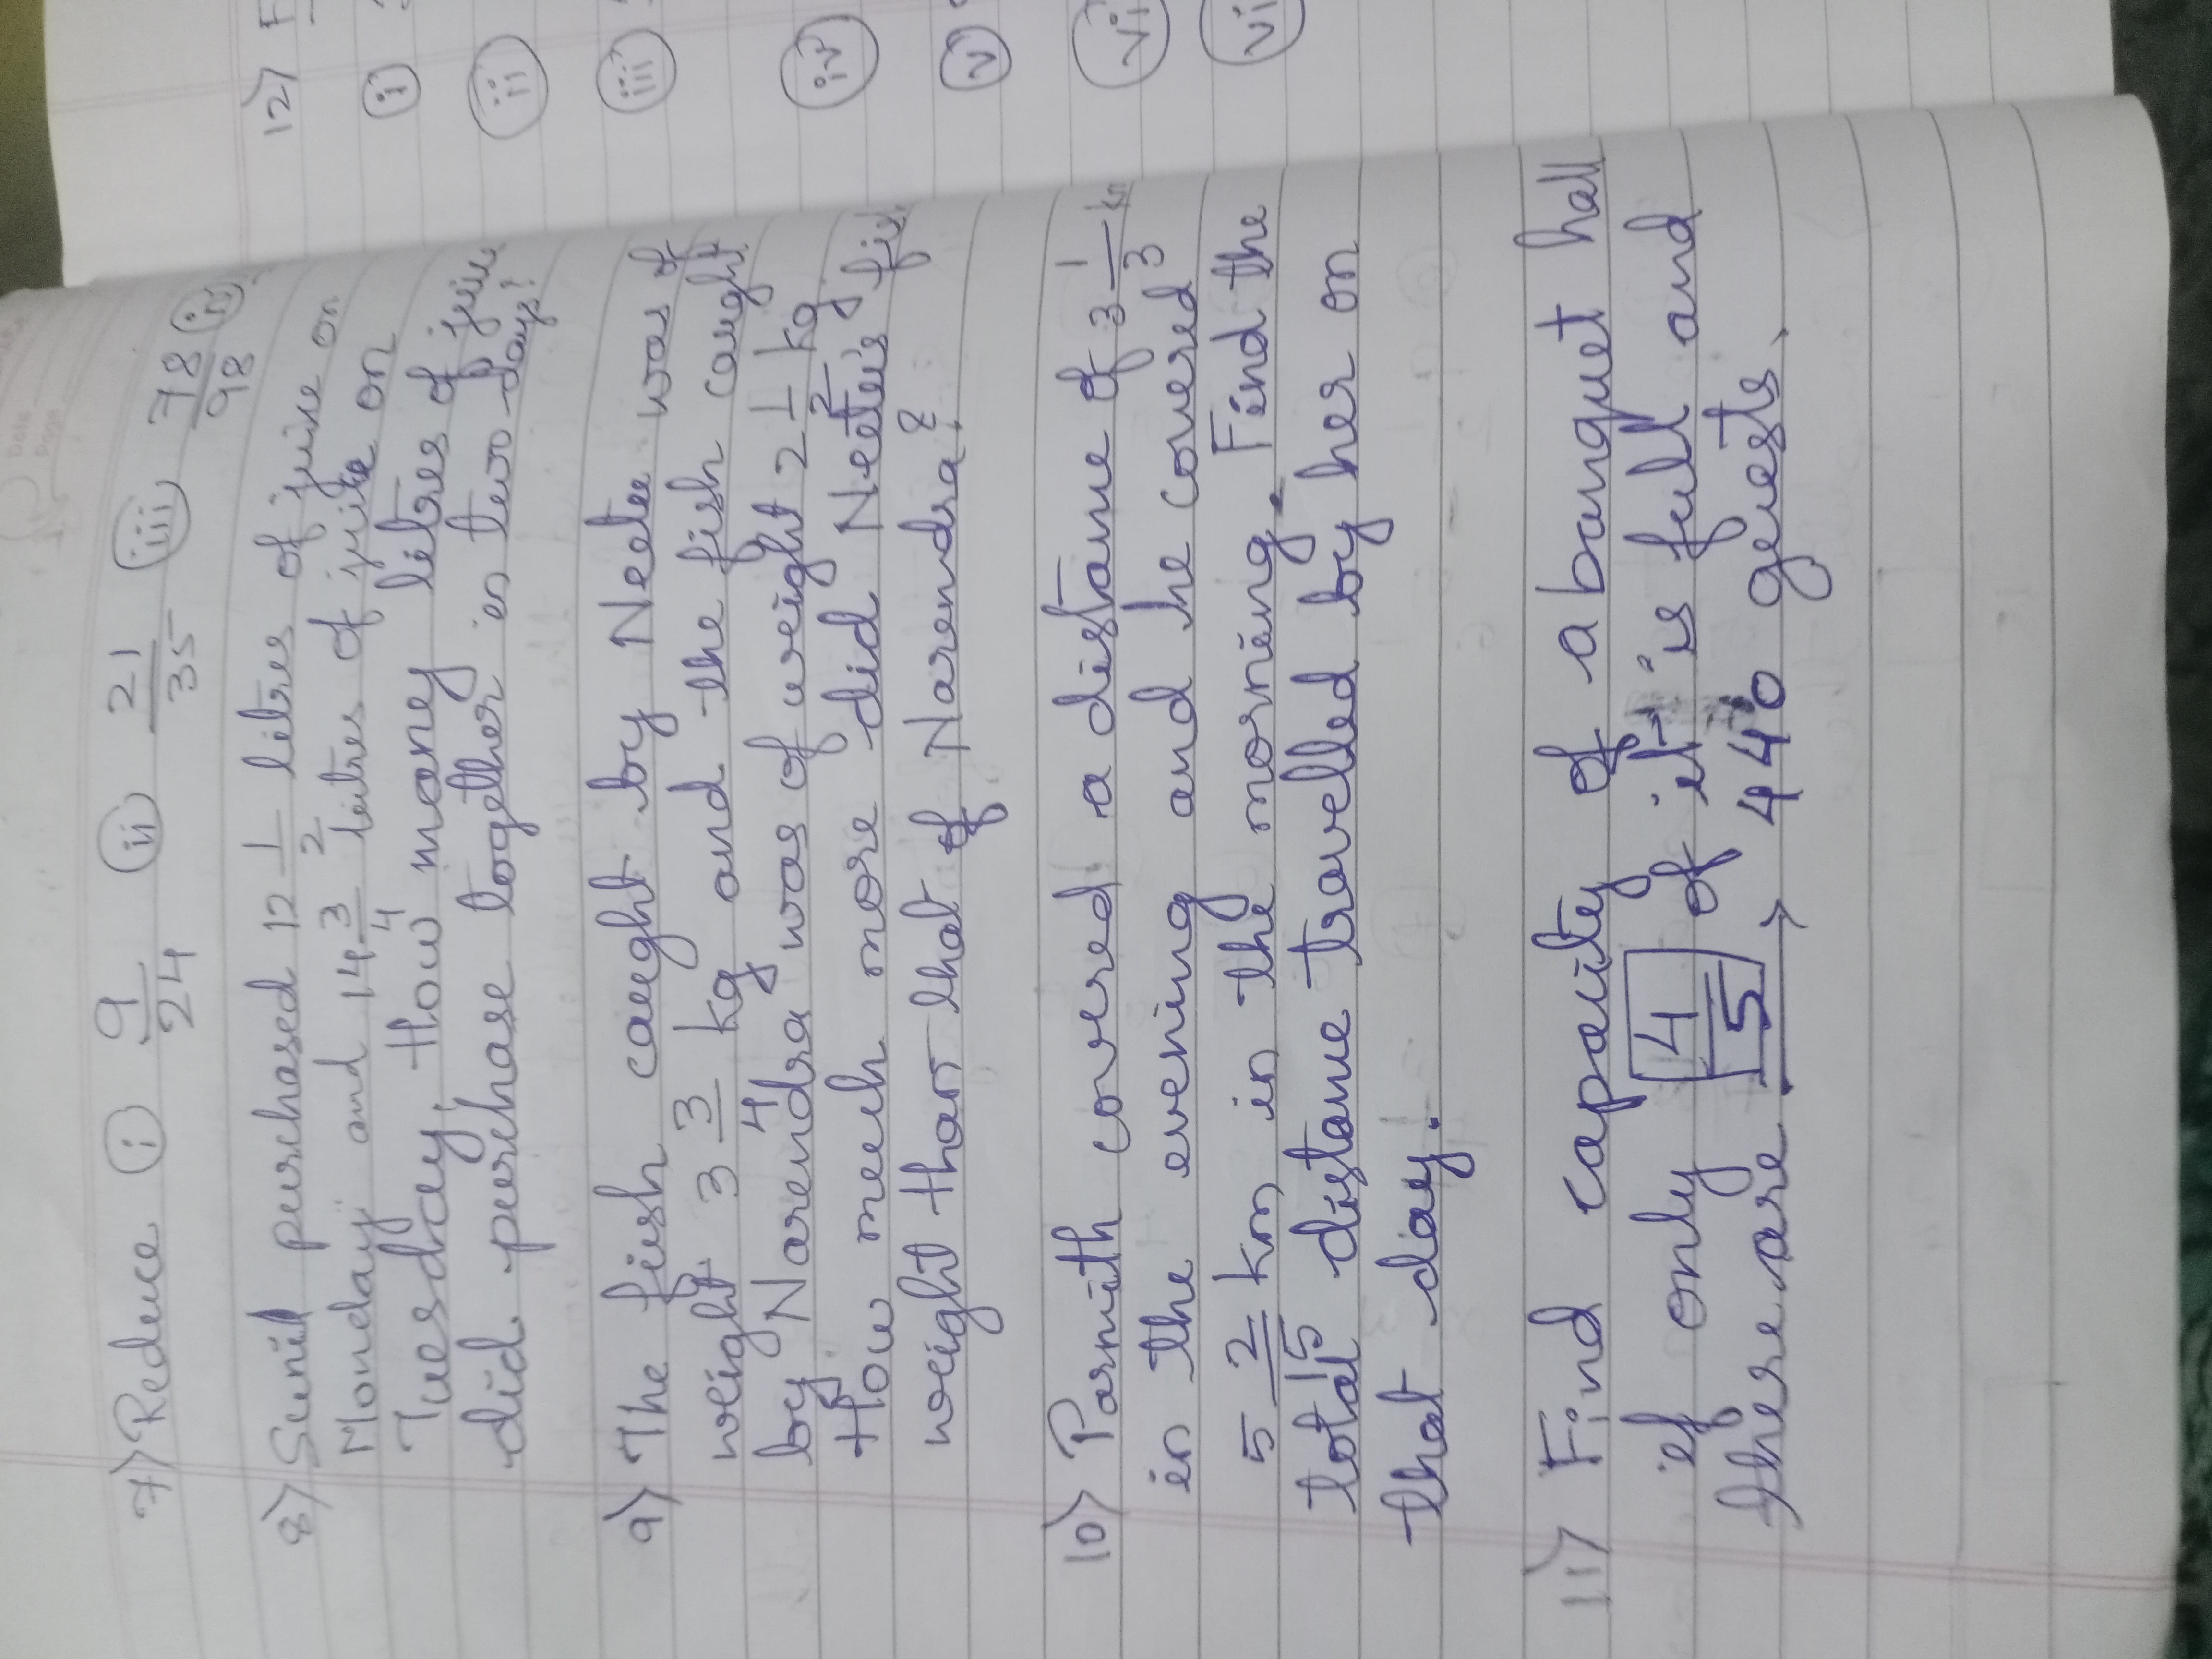 7) Reduce (i) 9/24 (ii) 21/35 (iii) 78/98 (iv)
8) Sunil purchased 12 1/2 litres of juice on
Monday and 14 3/4 litres of juice on
Tuesday, How many litres of juice
did purchase together in two days?
9) The fish caught by Neetu was of
weight 3 3/4 kg and the fish caught
by Narendra was of weight 2 1/2 kg
How much more did Neetu's fish
weight than that of Narendra?
10) Parmith covered a distance of 3 1/3 km
in the evening and he covered
5 2/5 km in the morning. Find the
total distance travelled by her on
that day.
11) Find capacity of a banquet hall
if only 4/5 of it is full and
there are 440 guests.
12) F
(i)
(ii)
(iii)
(iv)
(v)
(vi)
Date
Page